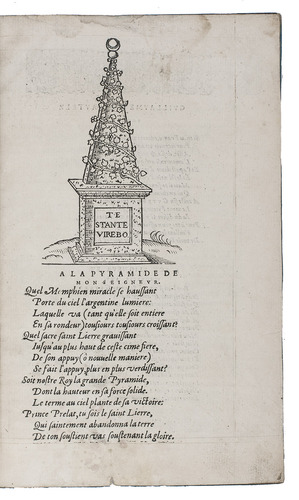 TE
STANTE
VIREBO
A LA PYRAMIDE DE
MONSEIGNEVR.
Quel Memphien miracle se haussant
Porte du ciel l'argentine lumiere:
Laquelle va (tant qu'elle soit entiere
En sa rondeur) tousiours tousiours croissant?
Quel sacre saint Lierre grauissant
Iusqu'au plus haut de ceste cime fiere,
De son appuy (ô nouuelle maniere)
Se fait l'appuy, plus en plus verdissant?
Soit nostre Roy la grande Pyramide,
Dont la hauteur en sa force solide
Le terme au ciel plante de sa victoire:
Prince Prelat, tu sois le saint Lierre,
Qui saintement abandonna la terre
De ton soustient vas soustenant la gloire.